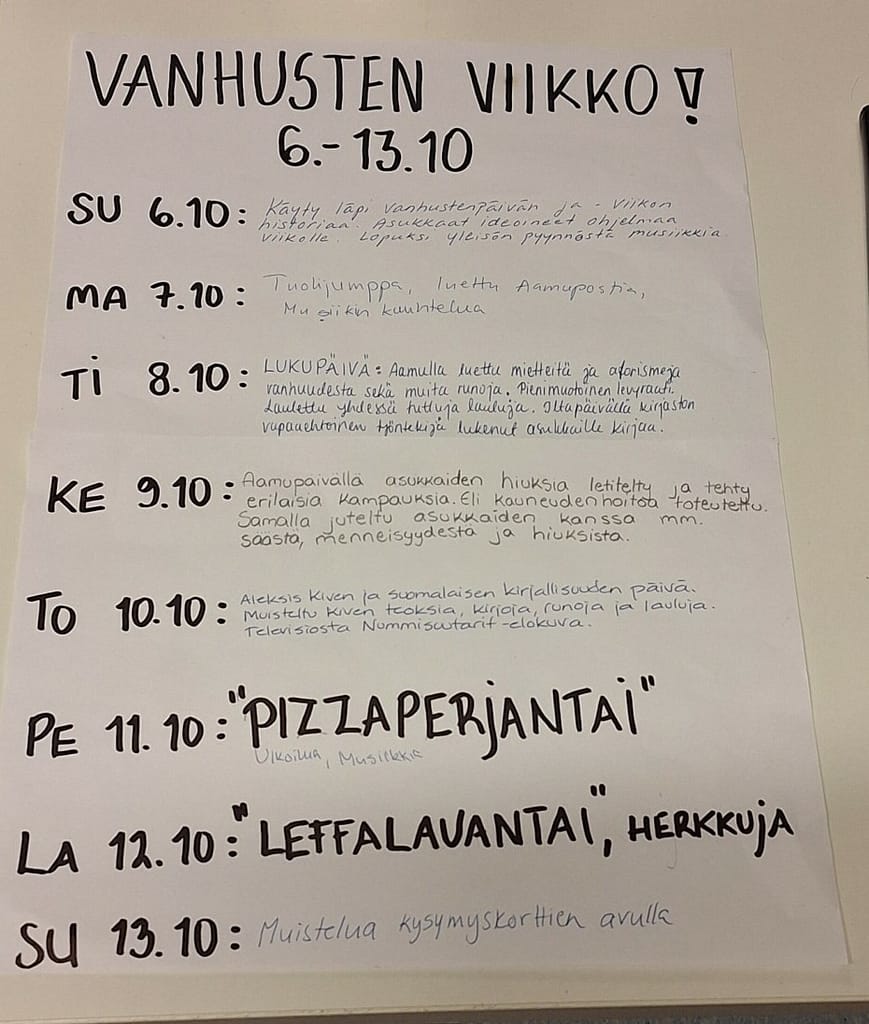 VANHUSTEN VIIKKO!
6.-13.10
SU 6.10: Käyty läpi vanhustenpäivän ja - viikon
historiaa. Asukkaat ideoineet ohjelmaa
viikolle. Lopuksi yleisön pyynnöstä musiikkia.
MA 7.10: Tuolijumppa, luettu Aamupostia,
Musiikin kuuntelua
Ti 8.10: LUKUPÄIVÄ: Aamulla luettu mietteitä ja aforismeja
vanhuudesta sekä muita runoja. Pienimuotoinen levyraati.
Laulettu yhdessä tuttuja lauluja. Iltapäivällä kirjaston
vapaaehtoinen työntekijä lukenut asukkaille kirjaa.
KE 9.10: Aamupäivällä asukkaiden hiuksia letitelty ja tehty
erilaisia kampauksia. Eli kauneudenhoitoa toteutettu.
Samalla juteltu asukkaiden kanssa mm.
säästä, menneisyydestä ja hiuksista.
TO 10.10: Aleksis Kiven ja suomalaisen kirjallisuuden päivä.
Muisteltu Kiven teoksia, kirjoja, runoja ja lauluja.
Televisiosta Nummisuutarit -elokuva.
PE 11.10: "PIZZAPERJANTAI"
Ulkoilua, Musiikkia
LA 12.10: "LEFFALAUANTAI", HERKKUJA
SU 13.10: Muistelua kysymyskorttien avulla